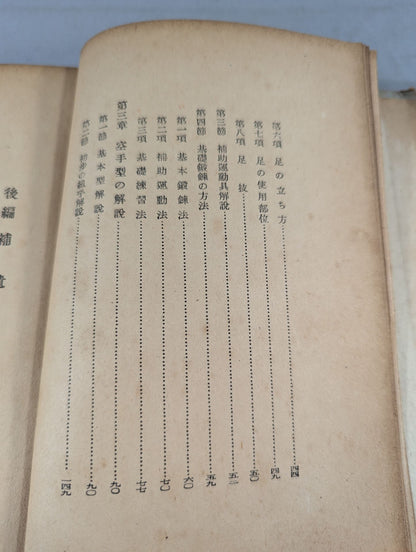 第六項 足の立ち方……四四
第七項 足の使用部位……四九
第八項 足技……五〇
第三節 補助運動具解説……五一
第四節 基礎鍛錬の方法……五九
第一項 基本鍛錬法……六〇
第二項 補助運動法……七〇
第三項 基礎練習法……七七
第三章 空手型の解説……九〇
第一節 基本型解説……九〇
第二節 の組手解説……一四九
後編 補遺